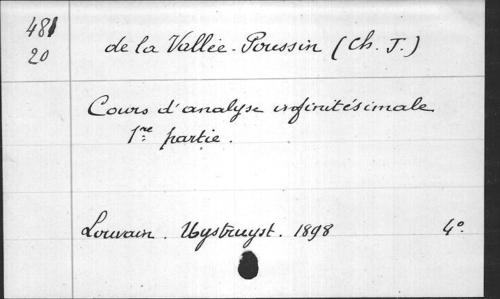 481
20
de la Vallée-Poussin (Ch. J.)
Cours d'analyse infinitésimale
1re partie.
Louvain. Uystruyst. 1898 4°